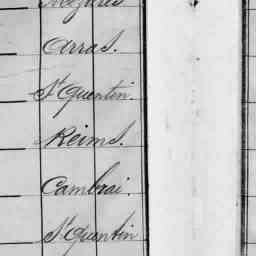 Arras.
St Quentin.
Reims.
Cambrai.
St Quentin